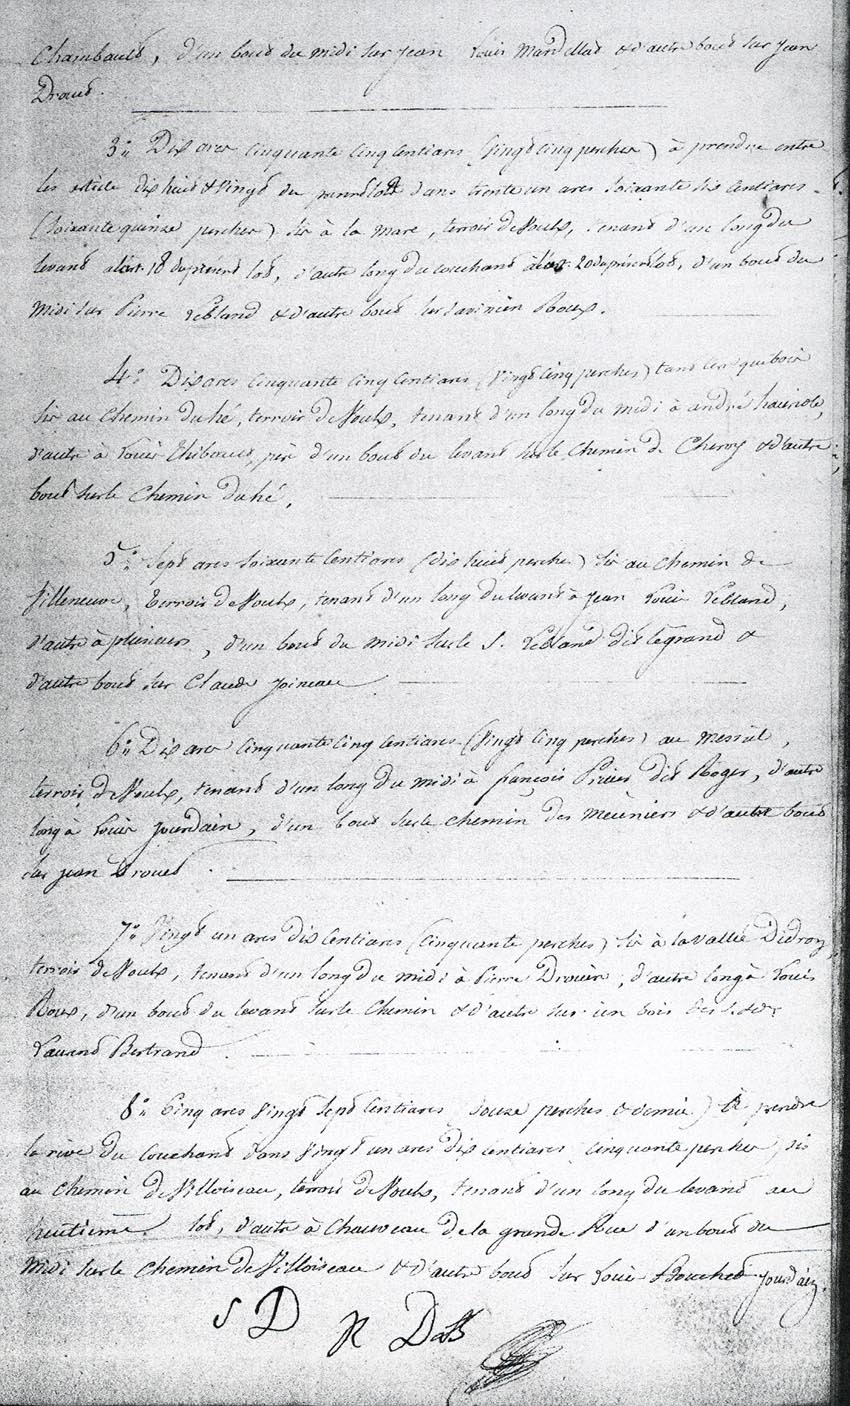 Chambault, d'un bout du midi sur Jean Louis Mardellad & d'autre bout sur Jean
Drouet.
3.° Dix ares cinquante cinq centiares (vingt cinq perches) à prendre entre
les article dix huit & vingt du present lot dans trente un ares soixante six centiares
(soixante quinze perches) sis à la mare, terroir de Voulx, tenant d'un long du
levant à l'art. 18 du présent lot, d'autre long du couchant à l'art. 20 du présent lot, d'un bout du
midi sur Pierre Lebland & d'autre bout sur Savinien Roux.
4.° Dix ares cinquante cinq centiares (vingt cinq perches) tant terre que bois
sis au chemin du hé, terroir de Voulx, tenant d'un long du midi à andré hauriote,
d'autre à Louis Thibault, père d'un bout du levant sur le chemin de Cheroy & d'autre
bout sur le chemin du hé.
5.° Sept ares soixante centiares (dix huit perches) sis au chemin de
Villeneuve, terroir de Voulx, tenant d'un long du levant à Jean Louis Lebland,
d'autre à plusieurs, d'un bout du midi sur le S. Lebland dit legrand &
d'autre bout sur Claude Joineau
6.° Dix ares cinquante cinq centiares (vingt cinq perches) au Mesnil,
terroir de Voulx, tenant d'un long du midi à françois Prieur dit Roger, d'autre
long à Louis Jourdain, d'un bout sur le chemin des meuniers & d'autre bout
sur Jean Drouet.
7.° Vingt un ares dix centiares (cinquante perches) sis à la vallée Didroy,
terroir de Voulx, tenant d'un long du midi à Pierre Drouin, d'autre long à Louis
Roux, d'un bout du levant sur le chemin & d'autre sur un bois
Laurent Bertrand.
8.° Cinq ares vingt sept centiares (douze perches & demie) à prendre
la rive du couchant dans vingt un ares dix centiares (cinquante perches) sis
au chemin de Villoiseau, terroir de Voulx, tenant d'un long du levant au
huitieme lot, d'autre à Chauveau de la grande Rue d'un bout du
midi sur le chemin de Villoiseau & d'autre bout sur Louis Bouchet Jourdain.
S D R D